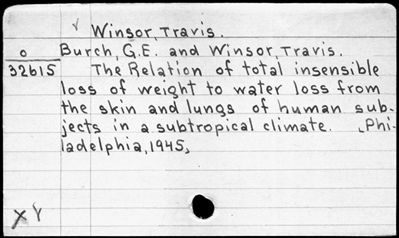 √ Winsor, Travis.
o Burch, G.E. and Winsor, Travis.
32615 The Relation of total insensible
loss of weight to water loss from
the skin and lungs of human sub-
jects in a subtropical climate. [Phi-
ladelphia, 1945,
XY